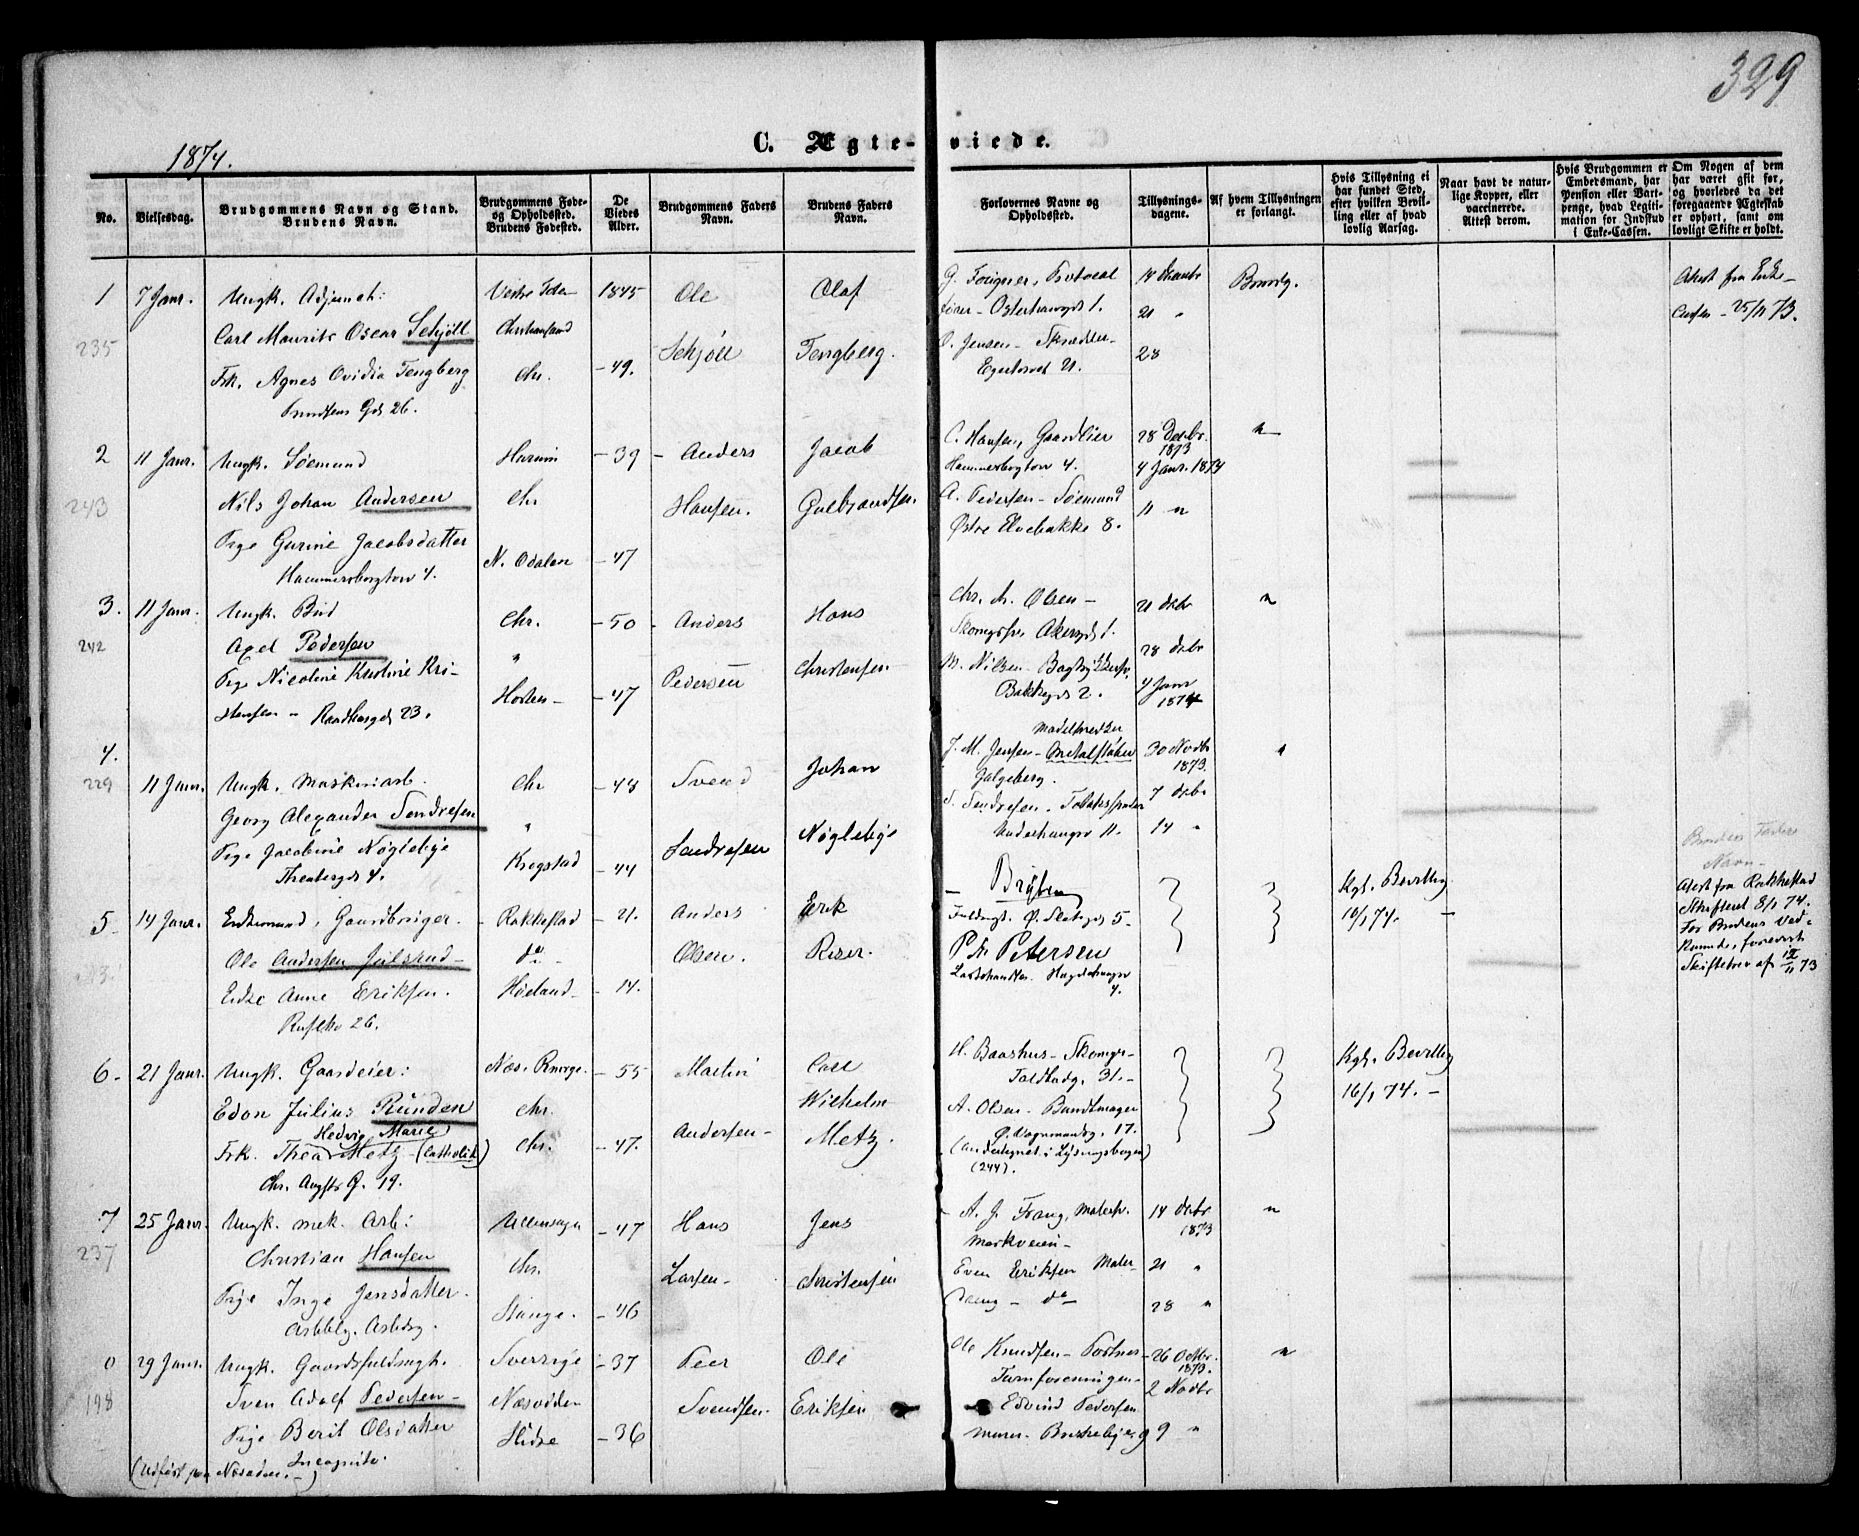 329
C. Ægteviede.
1874.
No.
Vielsesdag.
Brudgommens Navn og Stand.
Brudens Navn.
Brudgommens Føde- og Opholdssted.
Brudens Fødested.
De Viedes Alder.
Brudgommens Faders Navn.
Brudens Faders Navn.
Forlovernes Navne og Opholdssted.
Tillysnings-dagene.
Af hvem Tillysningen er forlangt.
Hvis Tillysning ei har fundet Sted, efter hvilken Bevilling eller af hvad lovlig Aarsag.
Naar havt de naturlige Kopper, eller vaccinerede. Attest derom.
Hvis Brudgommen er Embedsmand, har Pension eller Vartpenge, hvad Legitimation for Indskud i Enke-Cassen.
Om Nogen af dem har været gift før, og hvorledes da det foregaaende Ægteskab er ophørt, samt om lovligt Skifte er holdt.
1 7 Janr. Ungk. Adjunct: 1845 Ole Olaf 14 21 " 28
235 Carl Maurits Oscar Schjöll Christiansand Schjøll Tengberg.
Frk. Agnes Ovidia Tengberg Chr. -49.
Gd 26.
O. Jensen - Skrædder-
Attest fra Enke-
Cassen - 25/11 73.
2 11 Janr. Ungk. Søemand Hurum -39 - Anders Jacob
243 Nils Johan Andersen Chr Hansen. Gulbrandsen
Pige Gurine Jacobsdatter N. Odalen -47
Hammersborgtorv 4.
C. Hansen, Gaardeier 28 Decbr. 1873
Hammersborgtorv 4. 4 Janr. 1874
A. Pedersen - Søemand 11 "
Østre Elvebakke 8.
3. 11 Janr. Ungk. Bud Chr. -50 - Anders Hans
242 Axel Pedersen " Pedersen Christensen
Pige Nicoline Kristine Kri-
stensen - Raadhusgd 23. Horten - -47
Chr. A. Olsen - 21 Decbr "
Akersgd 1. 28 Decbr
M. Nilsen - 4 Janr 1874
Bakkegd 2.
4. 11 Janr. Ungk. Maskinarb. Chr -48 Svend Johan
229 Georg Alexander Sendresen " Sendresen Nøgleby
Pige Jacobine Nøgleby Krogstad -44
Theatergd 4.
Modelsnedker
J. M. Jensen - Metalstøber 30 Novbr 1873 "
Galgeberg. 7 Decbr
S. Sendresen - 14 "
11.
5. 14 Janr. Enkemand, Gaardbruger. Rakkestad - 21. Anders Erik
Ole Andersen Julsrud - do Olsen. Riser.
Enke Anne Eriksen. Høland - 14.
26.
Fuldmgt. Ø. Slotsgd 5 -
P. Chr Petersen
4.
Kgl. Bevillg
10/1 74. -
Brudens Faders
Navn -
Attest fra Rakkestad
Skifteret 8/1 74.
For Brudens Ved-
kommende, foreviist
Skiftebrev af 12/11 73
6. 21 Janr. Ungk. Gaardeier: - 55 Martin Carl
Edon Julius Runden Chr. Andersen - Wilhelm
Hedvig Marie
Frk. Thea Metz - (Catholik) Chr. -47. Metz.
Chr. Augusts G. 19.
H. Baashus - Skomgr -
Toldbodg. 31. -
A. Olsen - Bundtmager
Ø. Vognmandsg. 17.
(Andertegnet i Lysningsbogen)
(244).
Kgl. Bevillg
16/1 74. -
7 25 Janr. Ungk. mek. Arb: Ullensager -47 Hans Jens
237 Christian Hansen Chr. Larsen - Christensen
Pige Inge Jensdatter. Stange. -46
A. J. Frang, Malersv. 14 Decbr 1873 "
Markveien -
Even Eriksen Maler- 21 "
svend - do 28 "
29 Janr. Ungk. Gaardsfuldmgt. Sverrige -37 Peer Ole
198 Sven Adolf Pedersen - Næsodden Svendsen. Eriksen
Pige Berit Olsdatter Slidre -36
Incognito.
(Udført paa Næsodden. -)
Ole Knudsen - Portner - 26 Octbr. 1873. "
Turnforeningen - 2 Novbr
Edvind Pedersen
Murer. 9 "